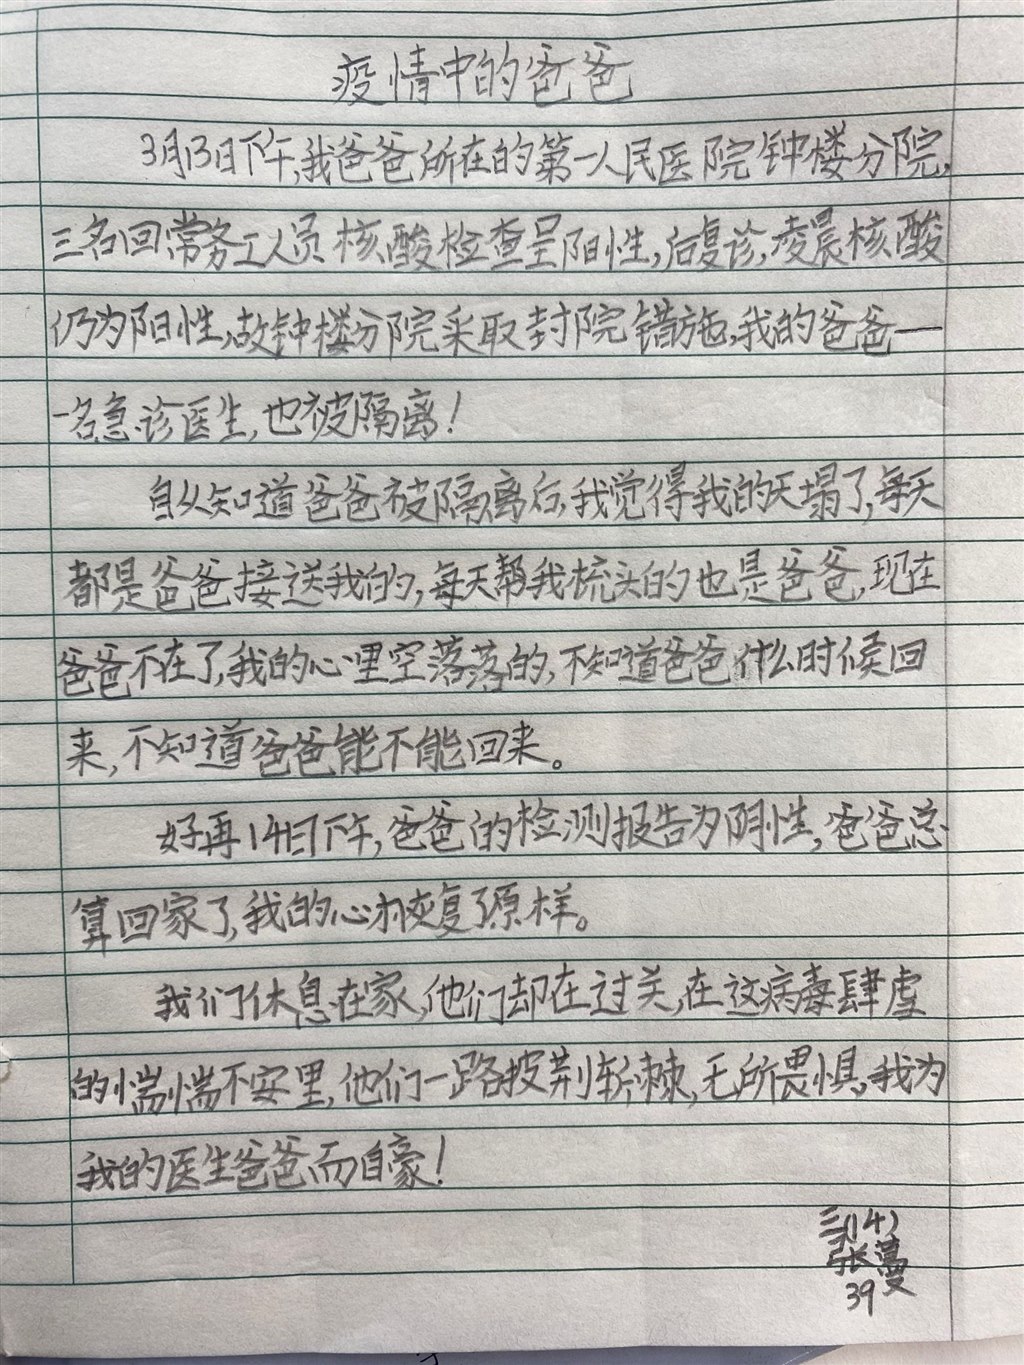 疫情中的爸爸
3月13日下午,我爸爸所在的第一人民医院钟楼分院,
三名回常务工人员核酸检查呈阳性,后复诊,凌晨核酸
仍为阳性,故钟楼分院采取封院错施,我的爸爸一
一名急诊医生,也被隔离!
自从知道爸爸被隔离后,我觉得我的天塌了,每天
都是爸爸接送我的,每天帮我梳头的也是爸爸,现在
爸爸不在了,我的心里空落落的,不知道爸爸什么时候回
来,不知道爸爸能不能回来。
好再14日下午,爸爸的检测报告为阴性,爸爸总
算回家了,我的心才恢复了原样。
我们休息在家,他们却在过关,在这病毒肆虐
的惴惴不安里,他们一路披荆斩棘,无所畏惧,我为
我的医生爸爸而自豪!
三(14)
张蔓
39